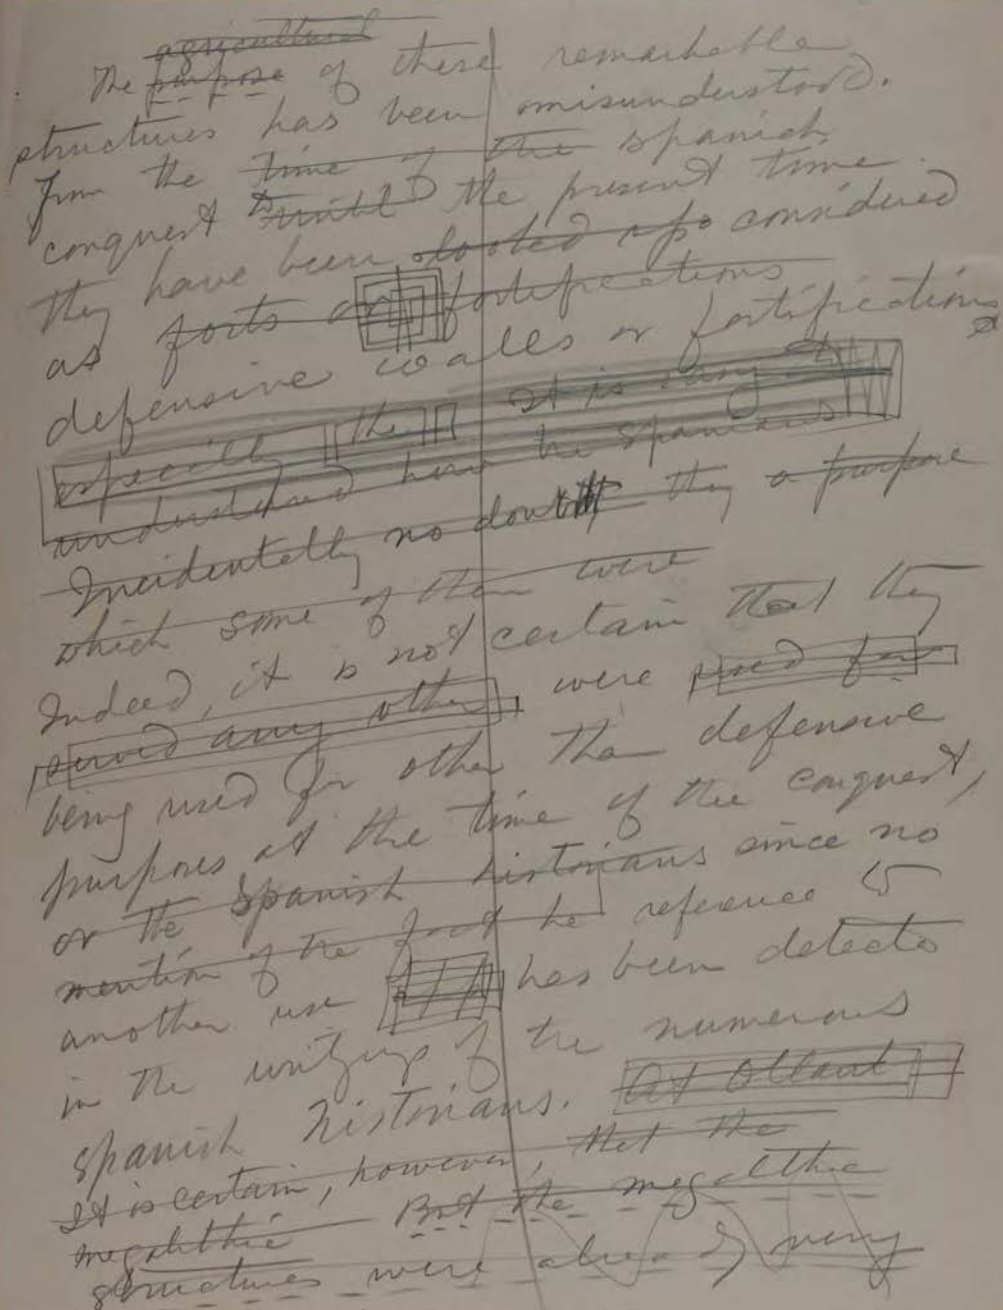 agricultural
The purpose of these remarkable
structures has been misunderstood.
From the time of the spanish
conquest to until the present time
they have been looked upo considered
as forts or fortifications
defensive walls or fortifications
especially the It is easy to
understand how the Spaniards
Incidentally no doubt they a purpose
which some of them were
Indeed, it is not certain that they
served any other were used for
being used for other than defensive
purposes at the time of the conquest,
or the Spanish historians since no
mention of the fact he reference to
another use has been detected
in the writings of the numerous
spanish historians. At Ollant
It is certain, however, that the
megalithic But the megalithic
structures were already very